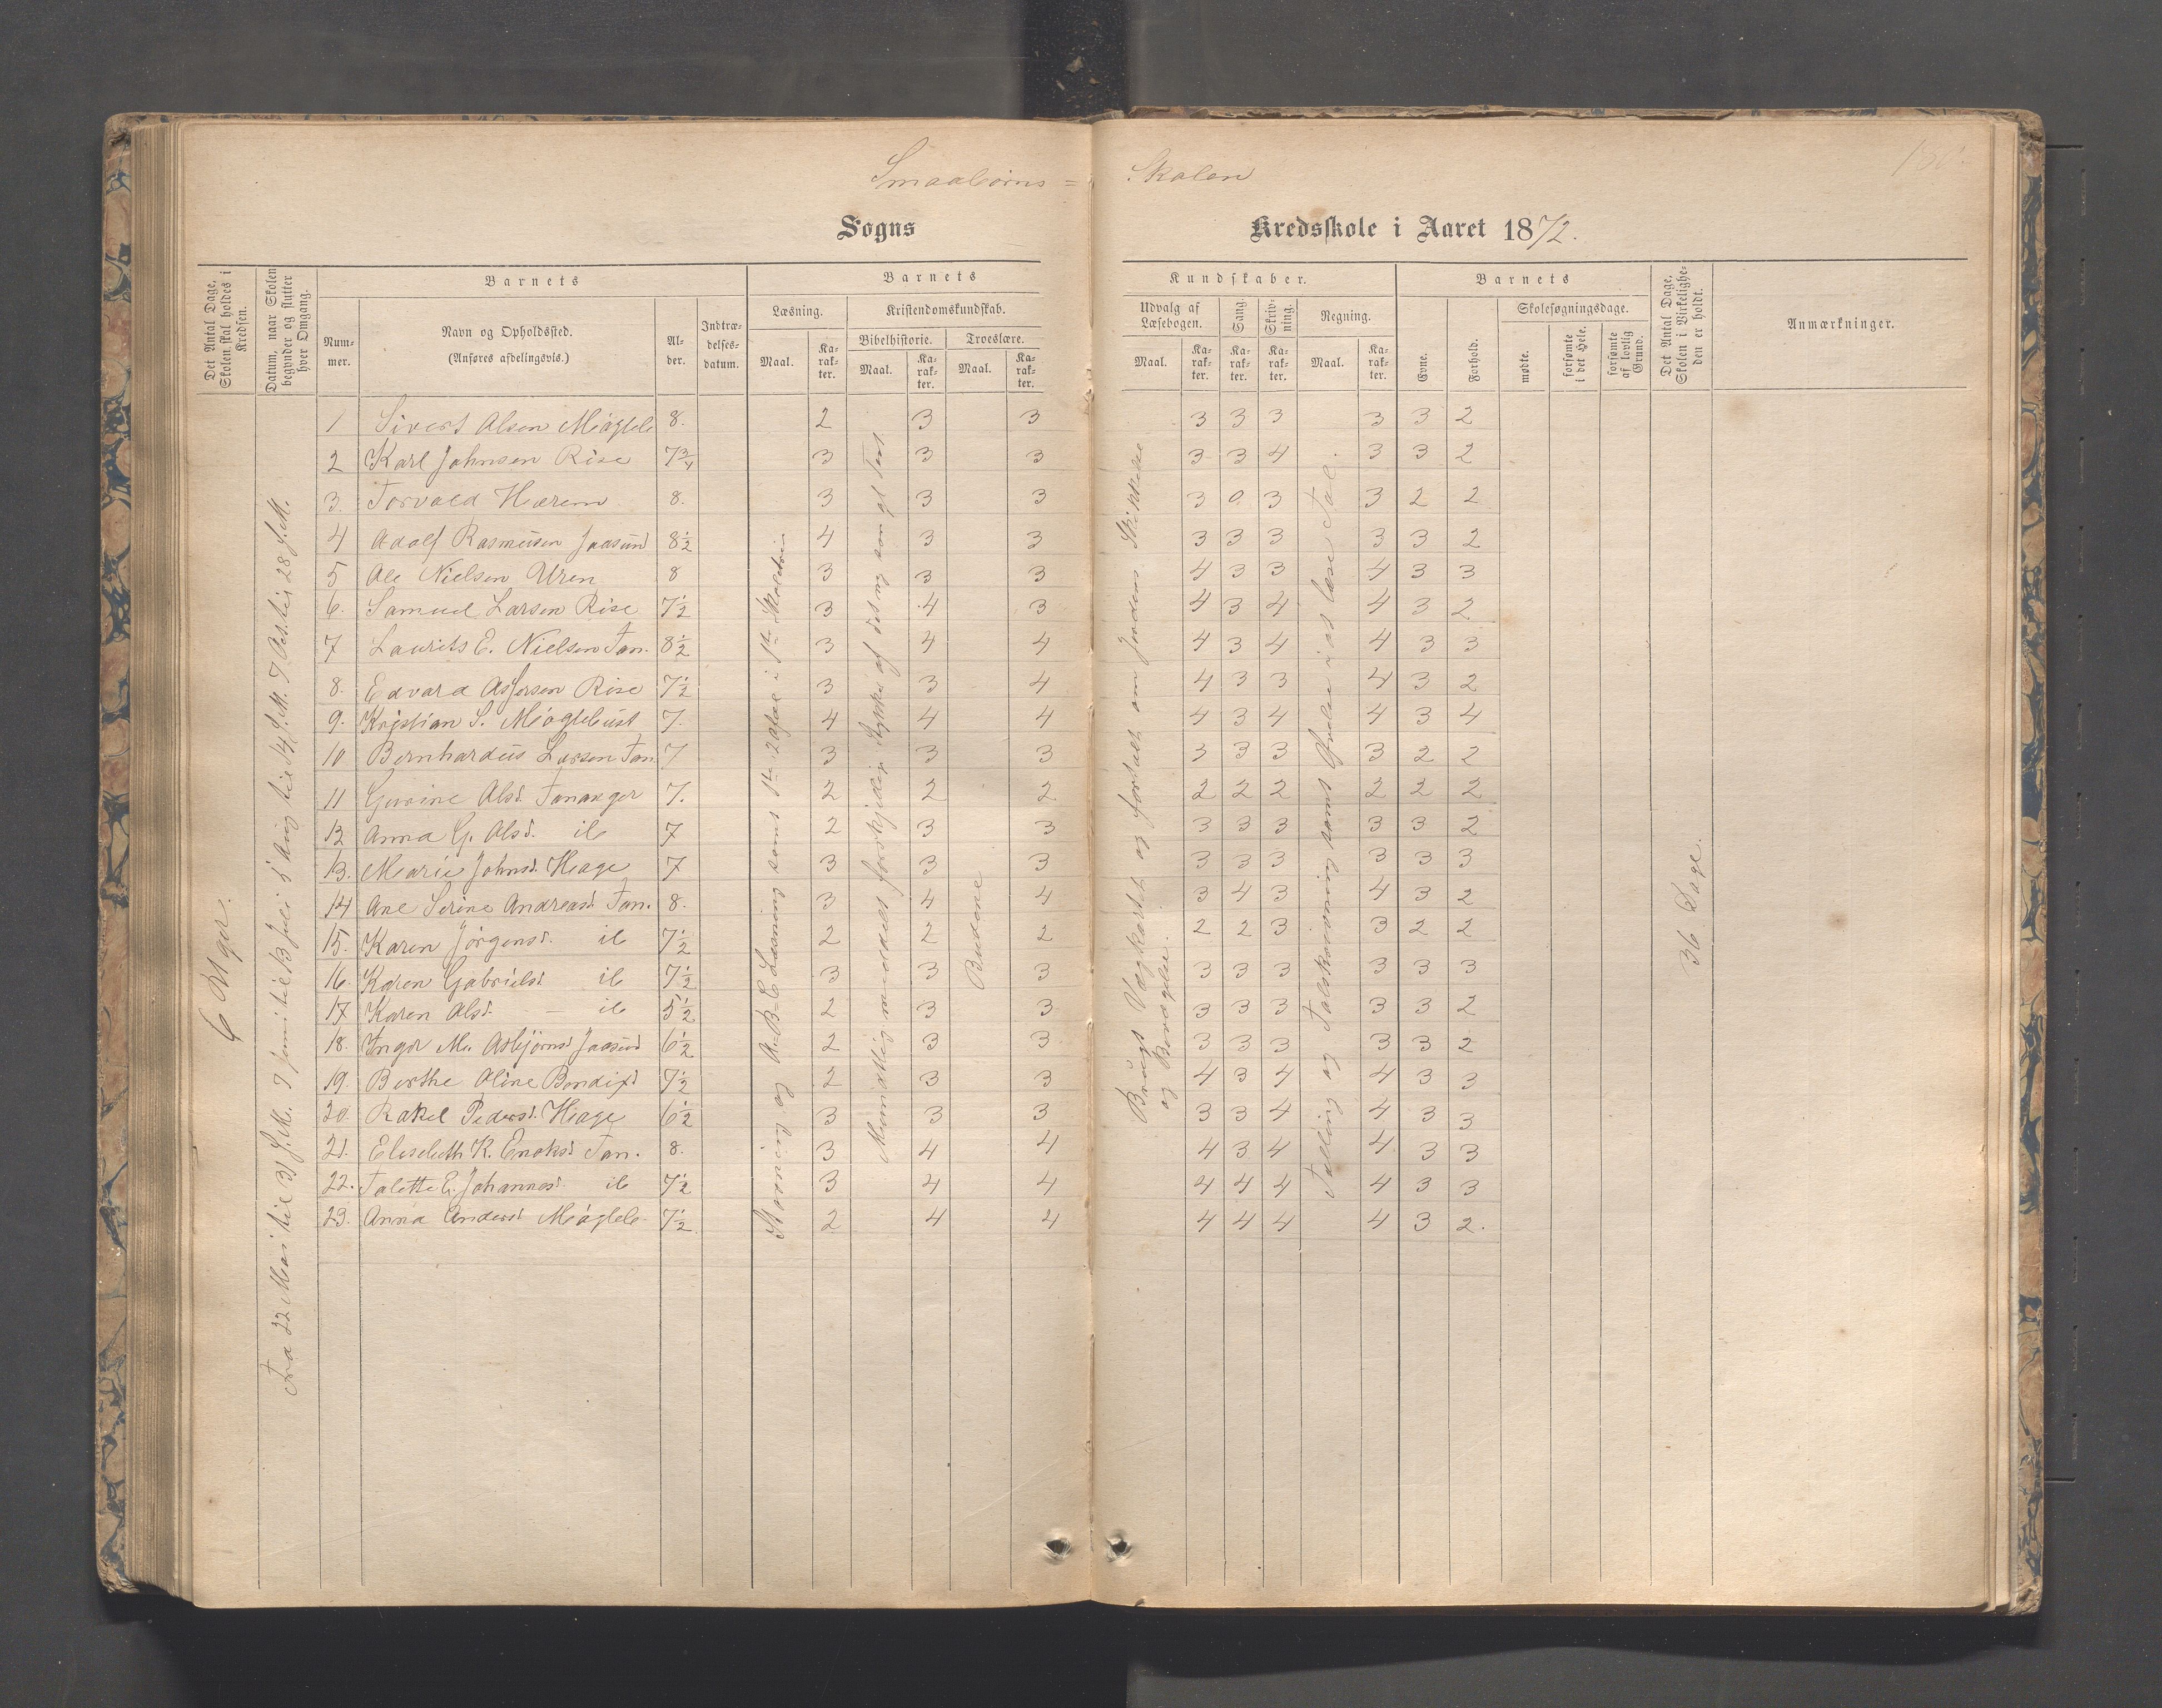 Smaabørns = Skolen
Sogns Kredsskole i Aaret 1872.
Det Antal Dage, Skolen skal holdes i Kredsen.
Datum, naar Skolen begynder og slutter hver Omgang.
Barnets
Nummer.
Navn og Opholdssted.
(Anføres afdelingsvis.)
Alber.
Indtrædelsesdatum.
Barnets
Læsning.
Maal.
Karakter.
Kristendomskundskab.
Bibelhistorie.
Maal.
Karakter.
Troeslære.
Maal.
Karakter.
Kundskaber.
Udvalg af Læsebogen.
Maal.
Karakter.
Sang.
Karakter.
Skrivning.
Karakter.
Regning.
Maal.
Karakter.
Barnets
Evne.
Forhold.
Skolesøgningsdage.
mødte.
forsømte i det Hele.
forsømte af lovlig Grund.
Det Antal Dage, Skolen i Virkeligheden er holdt.
Anmærkninger.
6 Uger.
Fra 22 Mai til 31 s. M. 7 Juni til 13 Juli 5 Aug til 14 s. M. 7 Oct. til 28 s. M.
Stavning og A-B-C Læsning samt 1ste 20 i 1ste
Mundtlig meddelt forskjellige Stykker af det ny og gl Test
Budene
Brugt Vægkartet og fortalt om Jordens Skikkelse
og Bevægelse.
Tælling og Talskrivning samt Øvelse i at læse Tal.
36 Dage.
1 Sivert Olsen Møgleb 8. 2 3 3 3 3 3 3 3 2
2 Karl Johnsen Rise 7 3/4 3 3 3 3 3 4 3 3 2
3. Torvald Harem 8. 3 3 3 3 0 3 3 2 2
4 Adolf Rasmusen Jaasund 8 1/2 4 3 3 3 3 3 3 3 2
5 Ole Nielsen Uren 8 3 3 3 4 3 3 4 3 3
6. Samuel Larsen Rise 7 1/2 3 4 3 4 3 4 4 3 2
7 Laurits E. Nielsen Tan. 8 1/2 3 4 4 4 3 4 4 3 3
8. Edvard Asjersen Rise 7 1/2 3 3 4 4 3 3 4 3 2
9. Kristian S. Møglebust 7. 4 4 4 4 3 4 4 3 4
10 Bernhardus Larsen Tan. 7 3 3 3 3 3 3 3 2 2
11 Gurine Olsd. Tananger 7. 2 2 2 2 2 2 2 2 2
12 Anna G. Olsd. ib 7 2 3 3 3 3 3 3 3 2
13. Marie Johnsd. Hage 7 3 3 3 3 3 3 3 3 3
14 Ane Serine Andreasd Tan. 8. 3 4 4 3 4 3 4 3 2
15. Karen Jørgensd. ib 7 1/2 2 2 2 2 2 3 3 2 2
16. Karen Gabrielsd ib 7 1/2 3 3 3 3 3 3 3 3 3
17 Karen Olsd. — ib 5 1/2 2 3 3 3 3 3 3 3 2
18. Inger M. Asbjørnsd Jaasund 6 1/2 2 3 3 3 3 3 3 3 2
19. Berthe Oline Bendixd 7 1/2 2 3 3 4 3 4 4 3 3
20. Rakel Pedersd. Hage 6 1/2 3 3 3 3 3 4 4 3 3
21. Elisebeth K. Enoksd Tan. 8. 3 4 4 4 3 4 4 3 3
22. Talette E. Johannesd. ib 7 1/2 3 4 4 4 4 4 4 3 3
23. Anna Andersd Møgleb. 7 1/2 2 4 4 4 4 4 4 3 2.